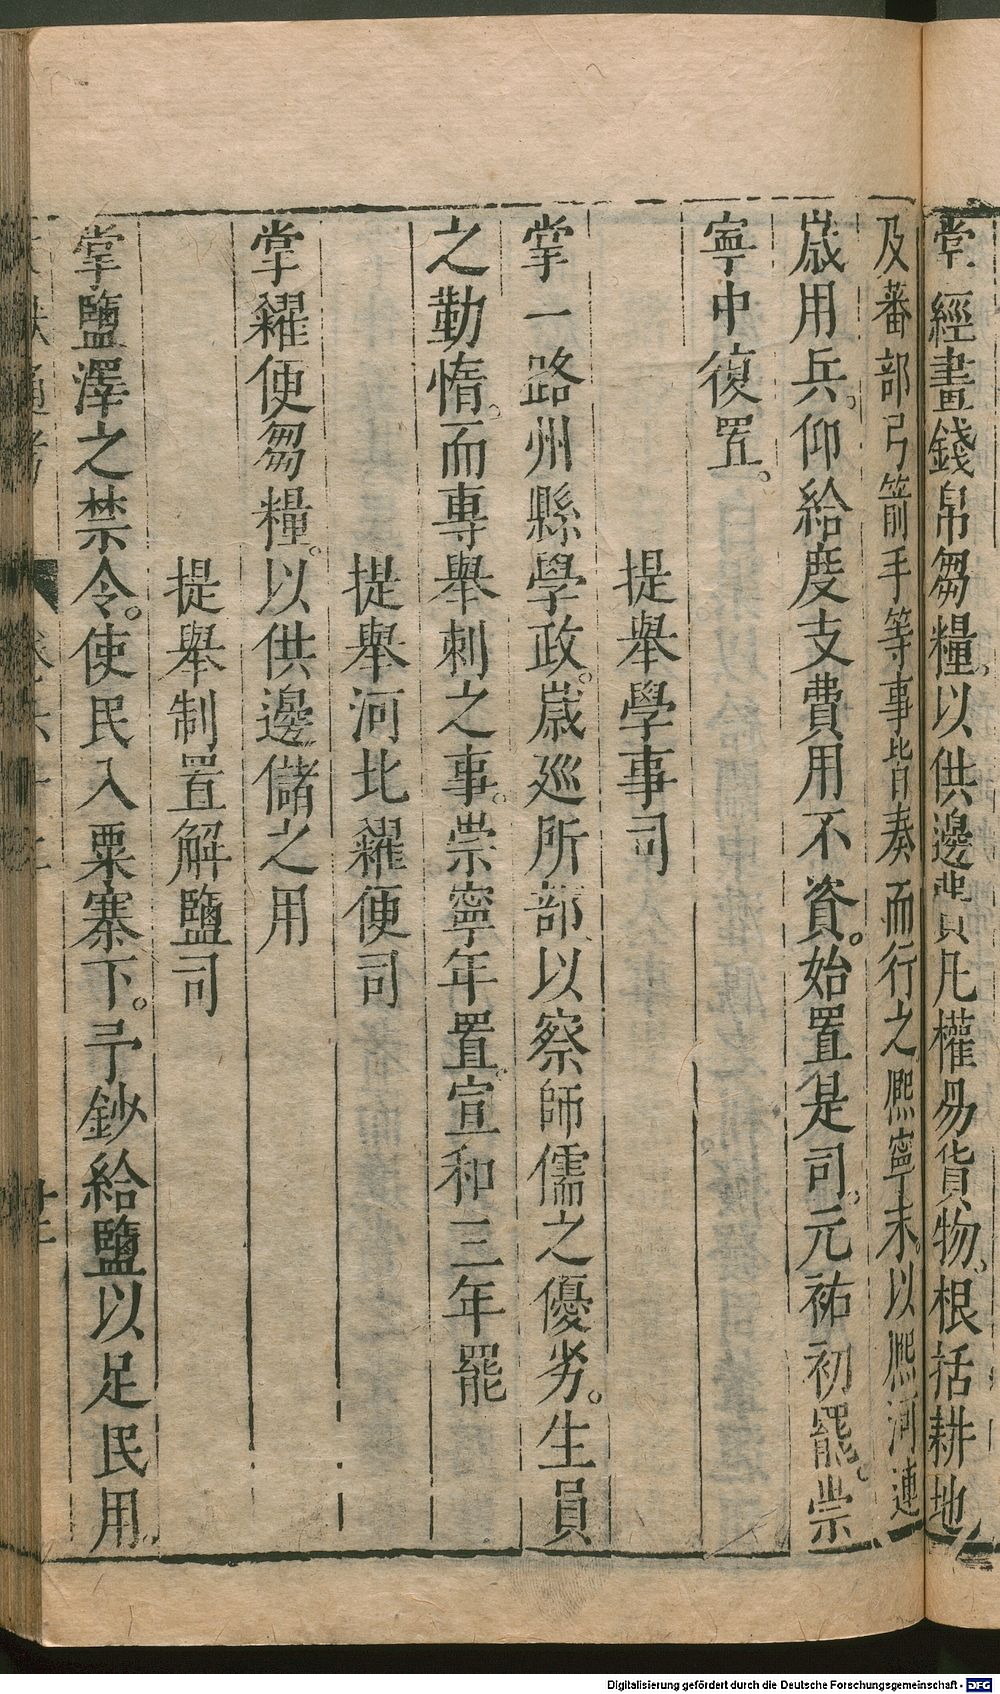 掌經畫錢帛芻糧。以供邊費凡榷易貨物。根括耕地
及蕃部弓箭手等事皆奏而行之熙寧末。以熙河連
歲用兵。仰給度支費用不資。始置是司。元祐初罷。崇
寧中復置。
提舉學事司
掌一路州縣學政。歲廵所部以察師儒之優劣。生員
之勤惰。而專舉刺之事。崇寧年置。宣和三年罷
提舉河北糴便司
掌糴便芻糧。以供邊儲之用
提舉制置解鹽司
掌鹽澤之禁令。使民入粟寨下。予鈔給鹽以足民用
Digitalisierung gefördert durch die Deutsche Forschungsgemeinschaft - DFG